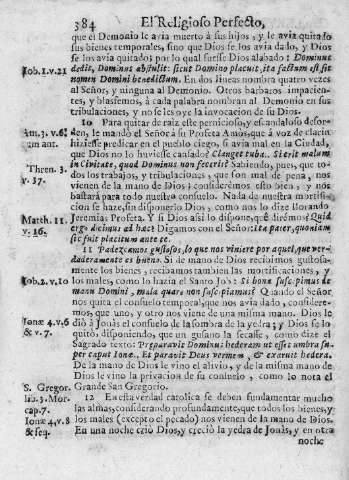 384 El Religioso Perfecto,
que el Demonio le avia muerto á sus hijos, y le avia quitado
sus bienes temporales, sino que Dios se los avia dado, y Dios
se los avia quitados por lo qual fuesse Dios alabado: Dominus
Iob.1.v.21 dedit, Dominus abstulit: sicut Domino placuit, ita factum est sit
nomen Domini benedictum. En dos lineas nombra quatro vezes
al Señor, y ninguna al Demonio. Otros barbaros impacien-
tes, y blasfemos, á cada palabra nombran al Demonio en sus
tribulaciones, y no se les oye la invocacion de su Dios.
10 Para quitar de raiz este pernicioso, y escandaloso desor-
Am.3. v.6. den, le mandó el Señor á su Profeta Amós, que á voz de clarin
ant. hiziesse predicar en el pueblo ciego, si avia mal en la Ciudad,
que Dios no lo huviesse causado? Clanget tuba. Si erit malum
in Civitate, quod Dominus non fecerit? Sabiendo, pues, que to-
Thren. 3. dos los trabajos, y tribulaciones, que son mal de pena, nos
v. 37. vienen de la mano de Dios; considerémos esto bien, y nos
bastará para todo nuestro consuelo. Nada de nuestra mortifica-
se hazé, sin disponerlo Dios, como nos lo dize llorando
Matth. 11. Jeremias Profeta. Y si Dios assi lo dispone, qué dirémos? Quid
v. 26. ergo dicimus ad hæc? Digamos con el Señor: ita pater, quoniam
sic fuit placitum ante te.
11 Padezcamos gustosos, lo que nos viniere por aquel, que ver-
daderamente es bueno. Si de mano de Dios recibimos gustosa-
mente los bienes, recibamos tambien las mortificaciones, y
Iob.2.v.10 los males, como lo hazia el Santo Job: Si bona suscepimus de
manu Domini, mala quare non suscipiamus? Quando el Señor
nos quita el consuelo temporal, que nos avia dado, consideré-
mos, que uno, y otro nos viene de una misma mano. Dios le
Ionæ 4.v.6 dió á Jonás el consuelo de la sombra de la yedra; y Dios se lo
& v.7. quitó, disponiendo, que un gusano la secasse, como dize el
Sagrado texto: Præparavit Dominus hederam ut esset umbra su-
per caput Ionæ. Et paravit Deus vermem, & exaruit hedera.
De la mano de Dios le vino el alivio, y de la misma mano de
Dios le vino la privacion de su consuelo, como lo nota el
S. Gregor. Grande San Gregorio.
lib.3.Mor. 12 En esta verdad catolica se deben fundamentar mucho
cap.7. las almas, considerando profundamente, que todos los bienes, y
Ionæ 4,v.8 los males (excepto el pecado) nos vienen de la mano de Dios.
& seq. En una noche crió Dios, y creció la yedra de Jonás, y en otra
noche